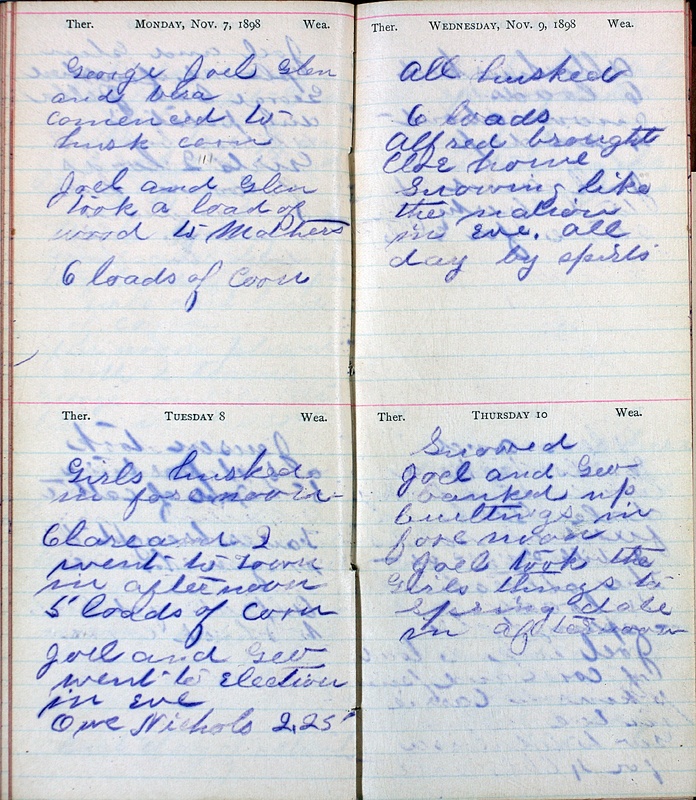 Ther. MONDAY, NOV. 7, 1898 Wea.
George Joel Glen
and
comenced to
husk corn
Joel and Glen
took a load of
wood to Mathers
6 loads of Corn
Ther. TUESDAY 8 Wea.
Girls husked
in forenoon
Clare and I
went to town
in afternoon
5 loads of Corn
Joel and Geo
went to Election
in Eve
Owe Nichols 2,25
Ther. WEDNESDAY, NOV. 9, 1898 Wea.
All husked
6 loads
Alfred brought
home
Snowing like
the nation
in Eve. all
day by spirts
Ther. THURSDAY 10 Wea.
Snowed
Joel and Geo
banked up
in
fore noon
Joel took the
Girls things to
Spring dale
in afternoon